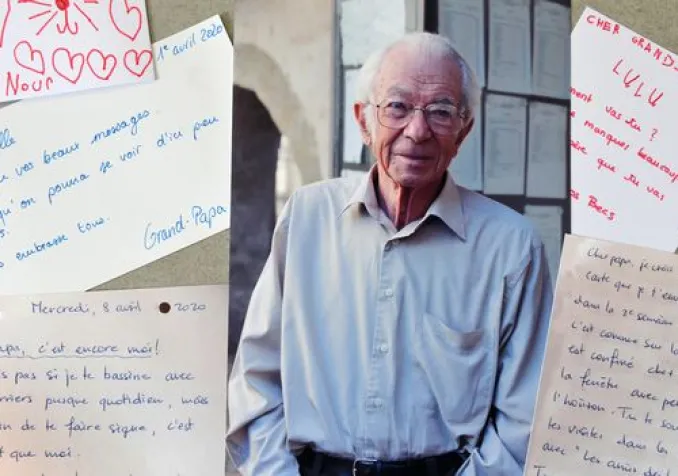 Nour
1er avril 2020
vos beaux messages.
qu'on pourra se voir d'ici peu
embrasse tous.
Grand-Papa
Mercredi, 8 avril 2020
papa, c'est encore moi!
pas si je te bassine avec
presque quotidien, mais
de te faire signe, c'est
que moi.
CHER GRAND-
LULU
vas tu ?
manques beaucoup
que tu vas
Bees
Cher papa, je crois
carte que je t'en
dans la 2e semaine
c'est comme sur
est confiné chez
la fenêtre avec
l'horizon. Tu te
tes visites dans
avec "Les amis